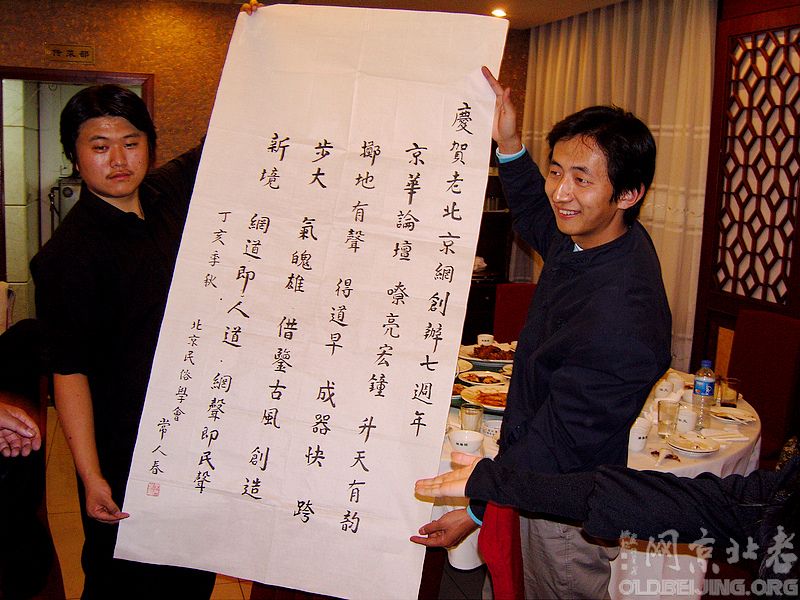 慶賀老北京網創辦七週年
京華論壇 嘹亮宏鐘 升天有韵
擲地有聲 得道早 成器快 跨
步大 氣魄雄 借鑒古風 創造
新境 網道即人道·網聲即民聲
丁亥季秋·
北京民俗學會
常人春
传菜部
网京北老
OLDBEIJING.ORG